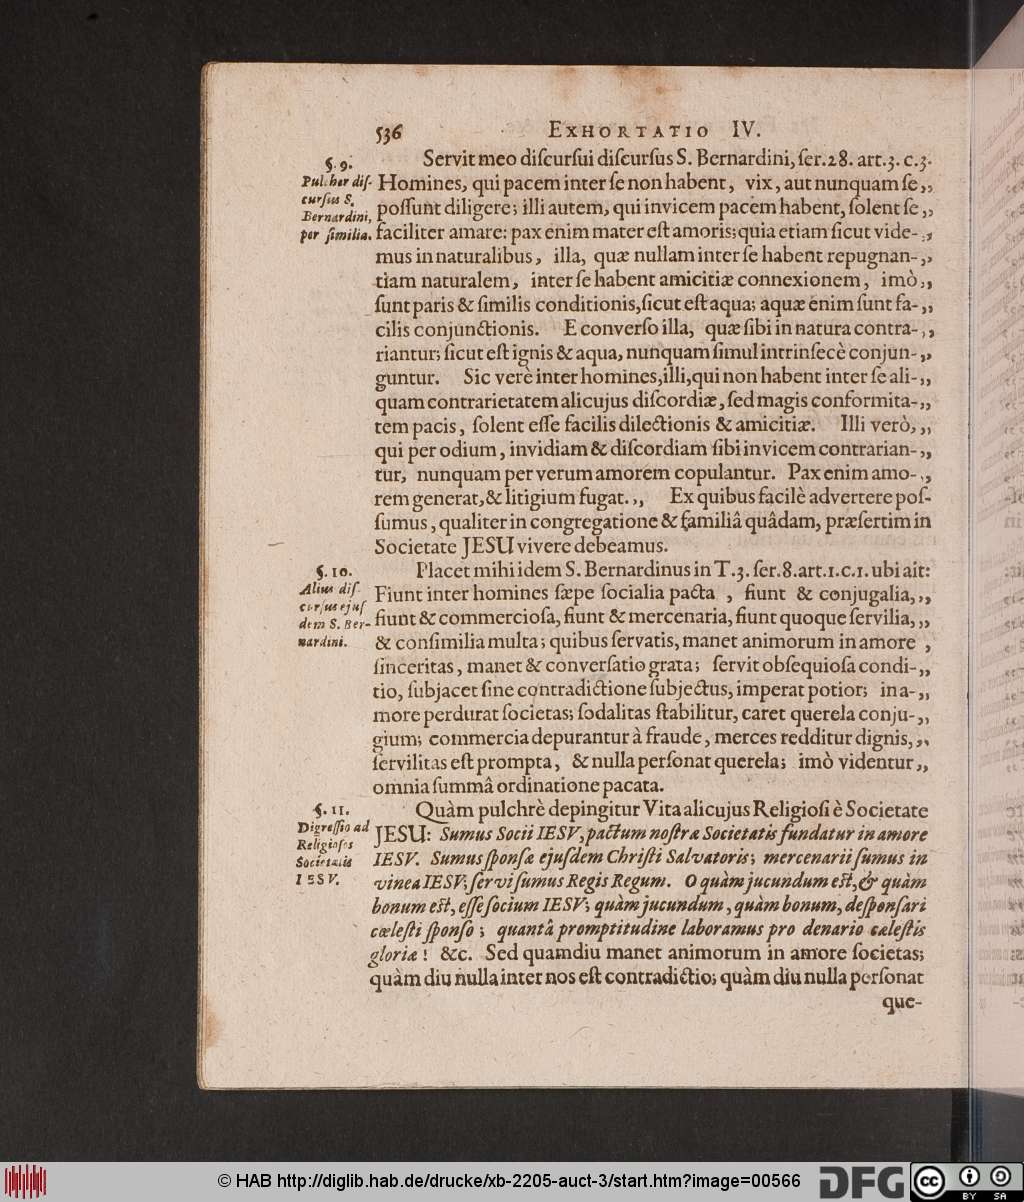 536 EXHORTATIO IV.
Servit meo diſcurſui diſcurſus S. Bernardini, ſer.28. art.3. c.3.
§. 9.
Pulcher diſ-
curſus S.
Bernardini,
per ſimilia.
Homines, qui pacem inter ſe non habent, vix, aut nunquam ſe,,
poſſunt diligere; illi autem, qui invicem pacem habent, ſolent ſe,,
faciliter amare: pax enim mater eſt amoris; quia etiam ſicut vide-,,
mus in naturalibus, illa, quæ nullam inter ſe habent repugnan-,,
tiam naturalem, inter ſe habent amicitiæ connexionem, imò,,
ſunt paris & ſimilis conditionis, ſicut eſt aqua; aquæ enim ſunt fa-,,
cilis conjunctionis. E converſo illa, quæ ſibi in natura contra-,,
riantur; ſicut eſt ignis & aqua, nunquam ſimul intrinſecè conjun-,,
guntur. Sic verè inter homines, illi, qui non habent inter ſe ali-,,
quam contrarietatem alicujus diſcordiæ, ſed magis conformita-,,
tem pacis, ſolent eſſe facilis dilectionis & amicitiæ. Illi verò,,,
qui per odium, invidiam & diſcordiam ſibi invicem contrarian-,,
tur, nunquam per verum amorem copulantur. Pax enim amo-,,
rem generat, & litigium fugat.,, Ex quibus facilè advertere poſ-
ſumus, qualiter in congregatione & familiâ quâdam, præſertim in
Societate JESU vivere debeamus.
§. 10.
Alius diſ-
curſus ejuſ
dem S. Ber-
nardini.
Placet mihi idem S. Bernardinus in T.3. ſer.8. art.1.c.1. ubi ait:
Fiunt inter homines ſæpe ſocialia pacta, fiunt & conjugalia,,,
fiunt & commercioſa, fiunt & mercenaria, fiunt quoque ſervilia,,,
& conſimilia multa; quibus ſervatis, manet animorum in amore ,
ſinceritas, manet & converſatio grata; ſervit obſequioſa condi-,,
tio, ſubjacet ſine contradictione ſubjectus, imperat potior; in a-,,
more perdurat ſocietas; ſodalitas ſtabilitur, caret querela conju-,,
gium; commercia depurantur à fraude, merces redditur dignis,,,
ſervilitas eſt prompta, & nulla perſonat querela; imò videntur,,
omnia ſummâ ordinatione pacata.
§. 11.
Digreſſio ad
Religioſos
Societatis
IESV.
Quàm pulchrè depingitur Vita alicujus Religioſi è Societate
JESU: Sumus Socii IESV, pactum noſtræ Societatis fundatur in amore
IESV. Sumus ſponſæ ejuſdem Chriſti Salvatoris; mercenarii ſumus in
vinea IESV; ſervi ſumus Regis Regum. O quàm jucundum eſt, & quàm
bonum eſt, eſſe ſocium IESV; quàm jucundum, quàm bonum, deſponſari
cœleſti ſponſo; quantâ promptitudine laboramus pro denario cæleſtis
gloriæ! &c. Sed quamdiu manet animorum in amore ſocietas;
quàm diu nulla inter nos eſt contradictio; quàm diu nulla perſonat
que-
© HAB http://diglib.hab.de/drucke/xb-2205-auct-3/start.htm?image=00566
DFG
cc
BY SA